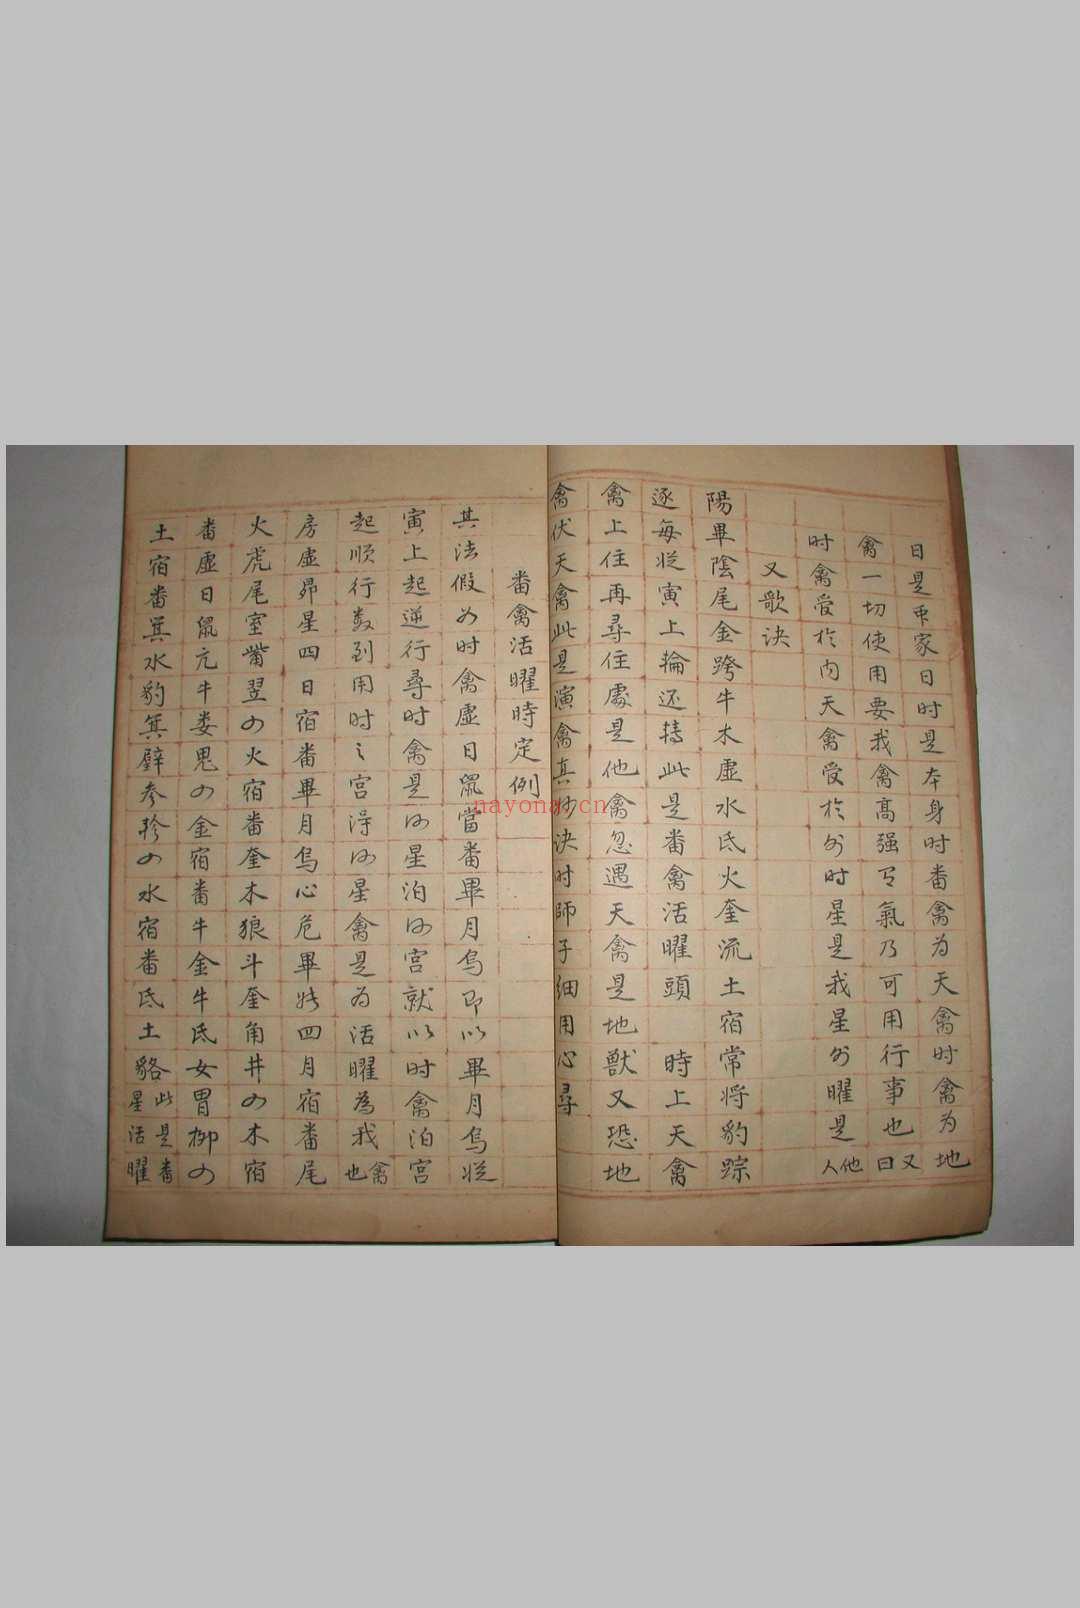 日是帀家日时是本身时番禽为天禽时禽为地
禽一切使用要我禽高强百氣乃可用行事也又曰
时禽受於内天禽受於外时星是我星外曜是他人
又歌诀
陽畢陰尾金跨牛木虚水氐火奎流土宿常将豹踪
逐每従寅上輪还转此是番禽活曜頭 時上天禽
禽上住再寻住處是他禽忽遇天禽是地獸又恐地
禽伏天禽此是演禽真妙决时師子细用心尋
番禽活曜時定例
其法假如时禽虚日鼠當番畢月乌即以畢月乌従
寅上起逆行尋时禽是何星泊何宫就以时禽泊宫
起順行数到用时之宫得何星禽是为活曜為我禽也
房虚昴星四日宿番畢月乌心危畢张四月宿番尾
火虎尾室觜翌四火宿番奎木狼斗奎角井四木宿
番虚日鼠亢牛娄鬼四金宿番牛金牛氐女胃柳四
土宿番箕水豹箕壁参轸四水宿番氐土貉此是番星活曜
nayona.cn